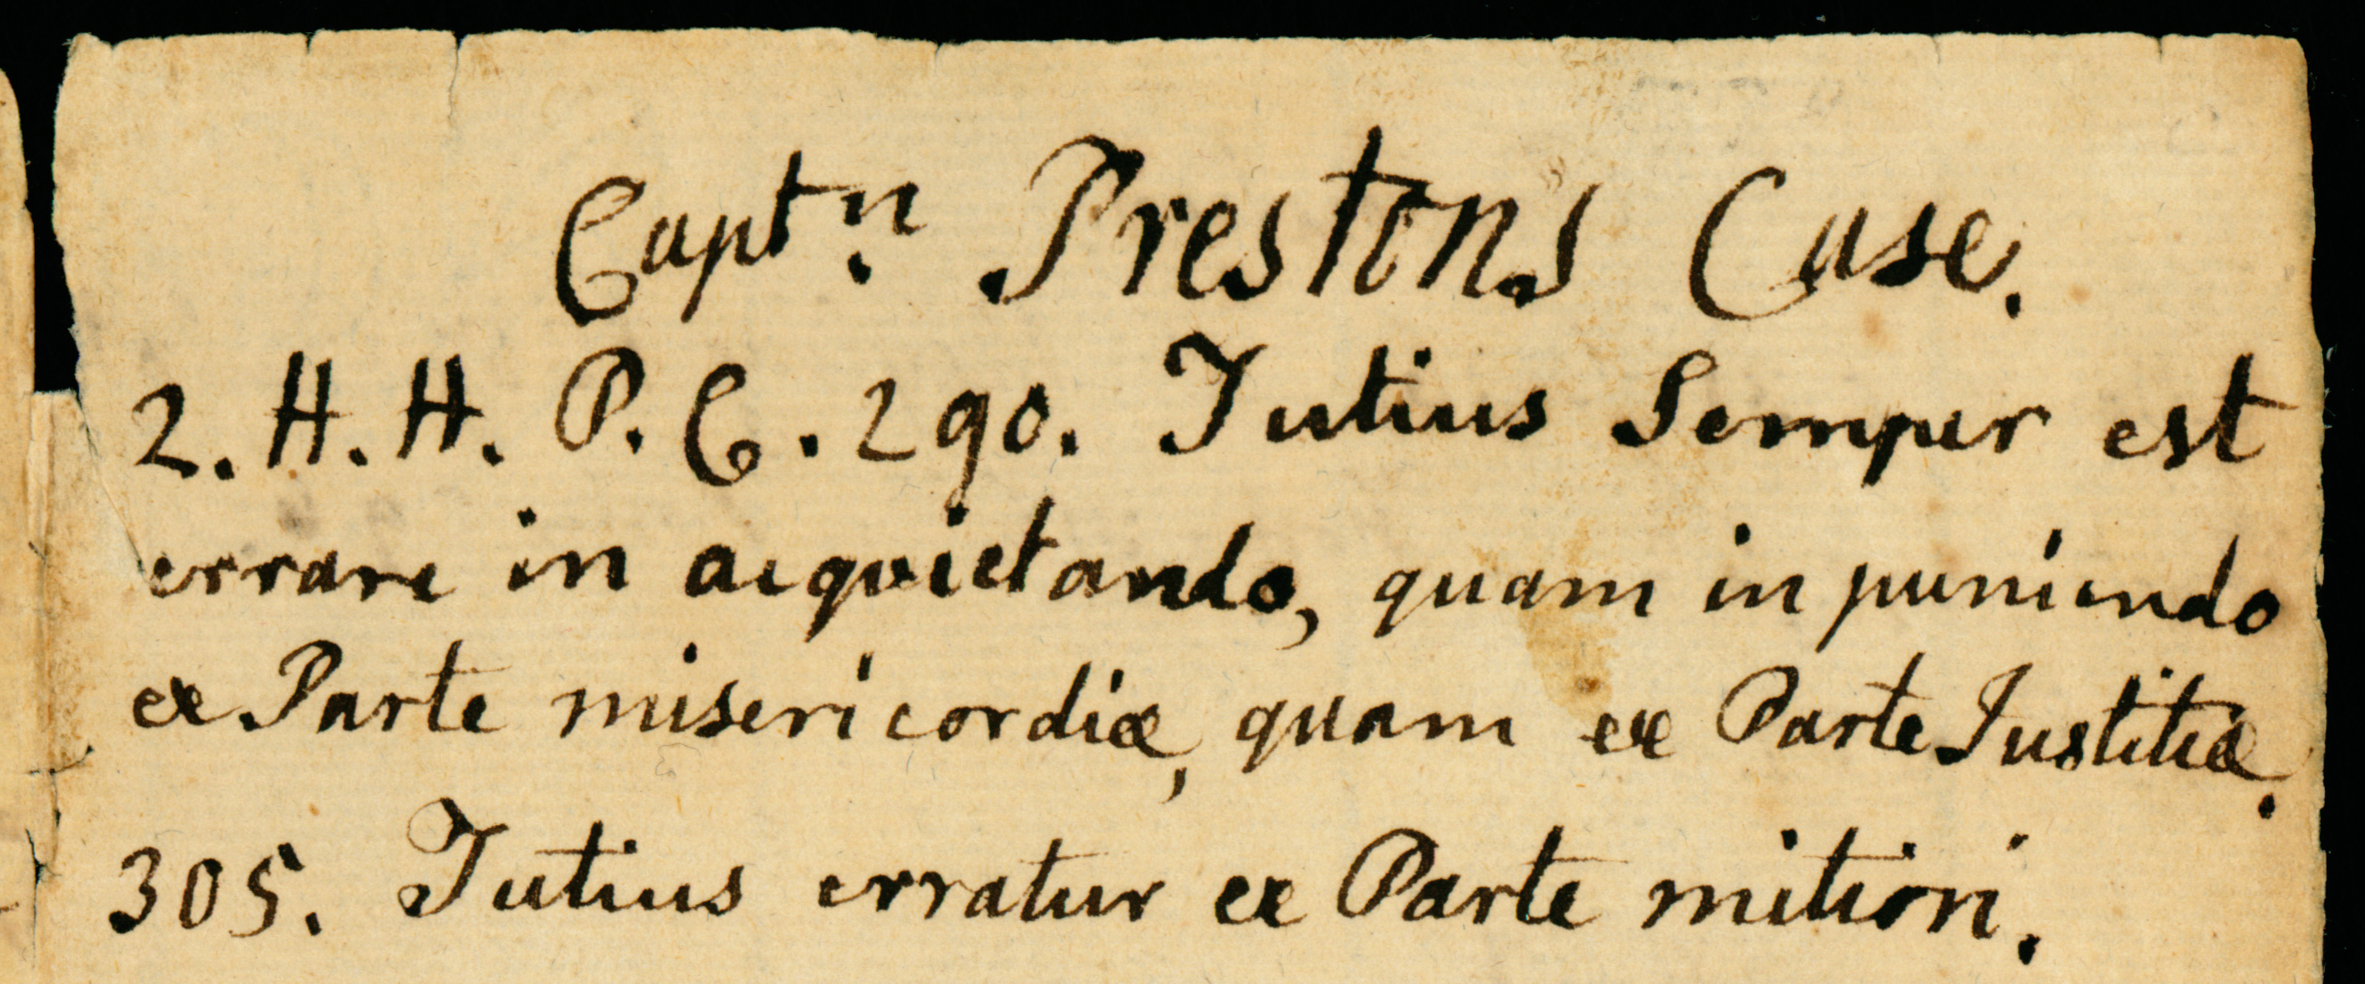 Captn. Prestons Case.
2. H. H. P. C. 290. Tutius Semper est
errare in acquietando, quam in puniendo
ex Parte misericordiæ, quam ex Parte Justitiæ.
305. Tutius erratur ex Parte mitiori.